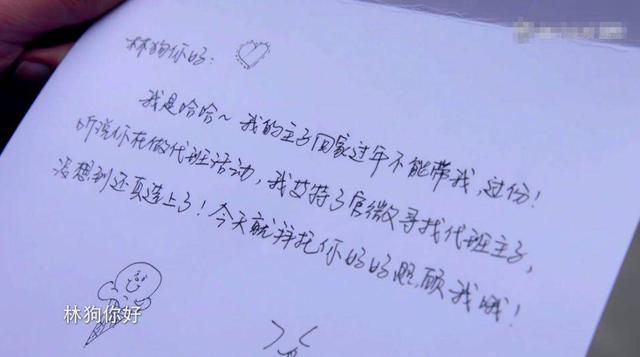 林狗你好：
我是哈哈～我的主子回家过年不能带我，过份！
听说你在做代班活动，我艾特了官微寻找代班主子，
没想到还真选上了！今天就拜托你好好照顾我哦！
林狗你好